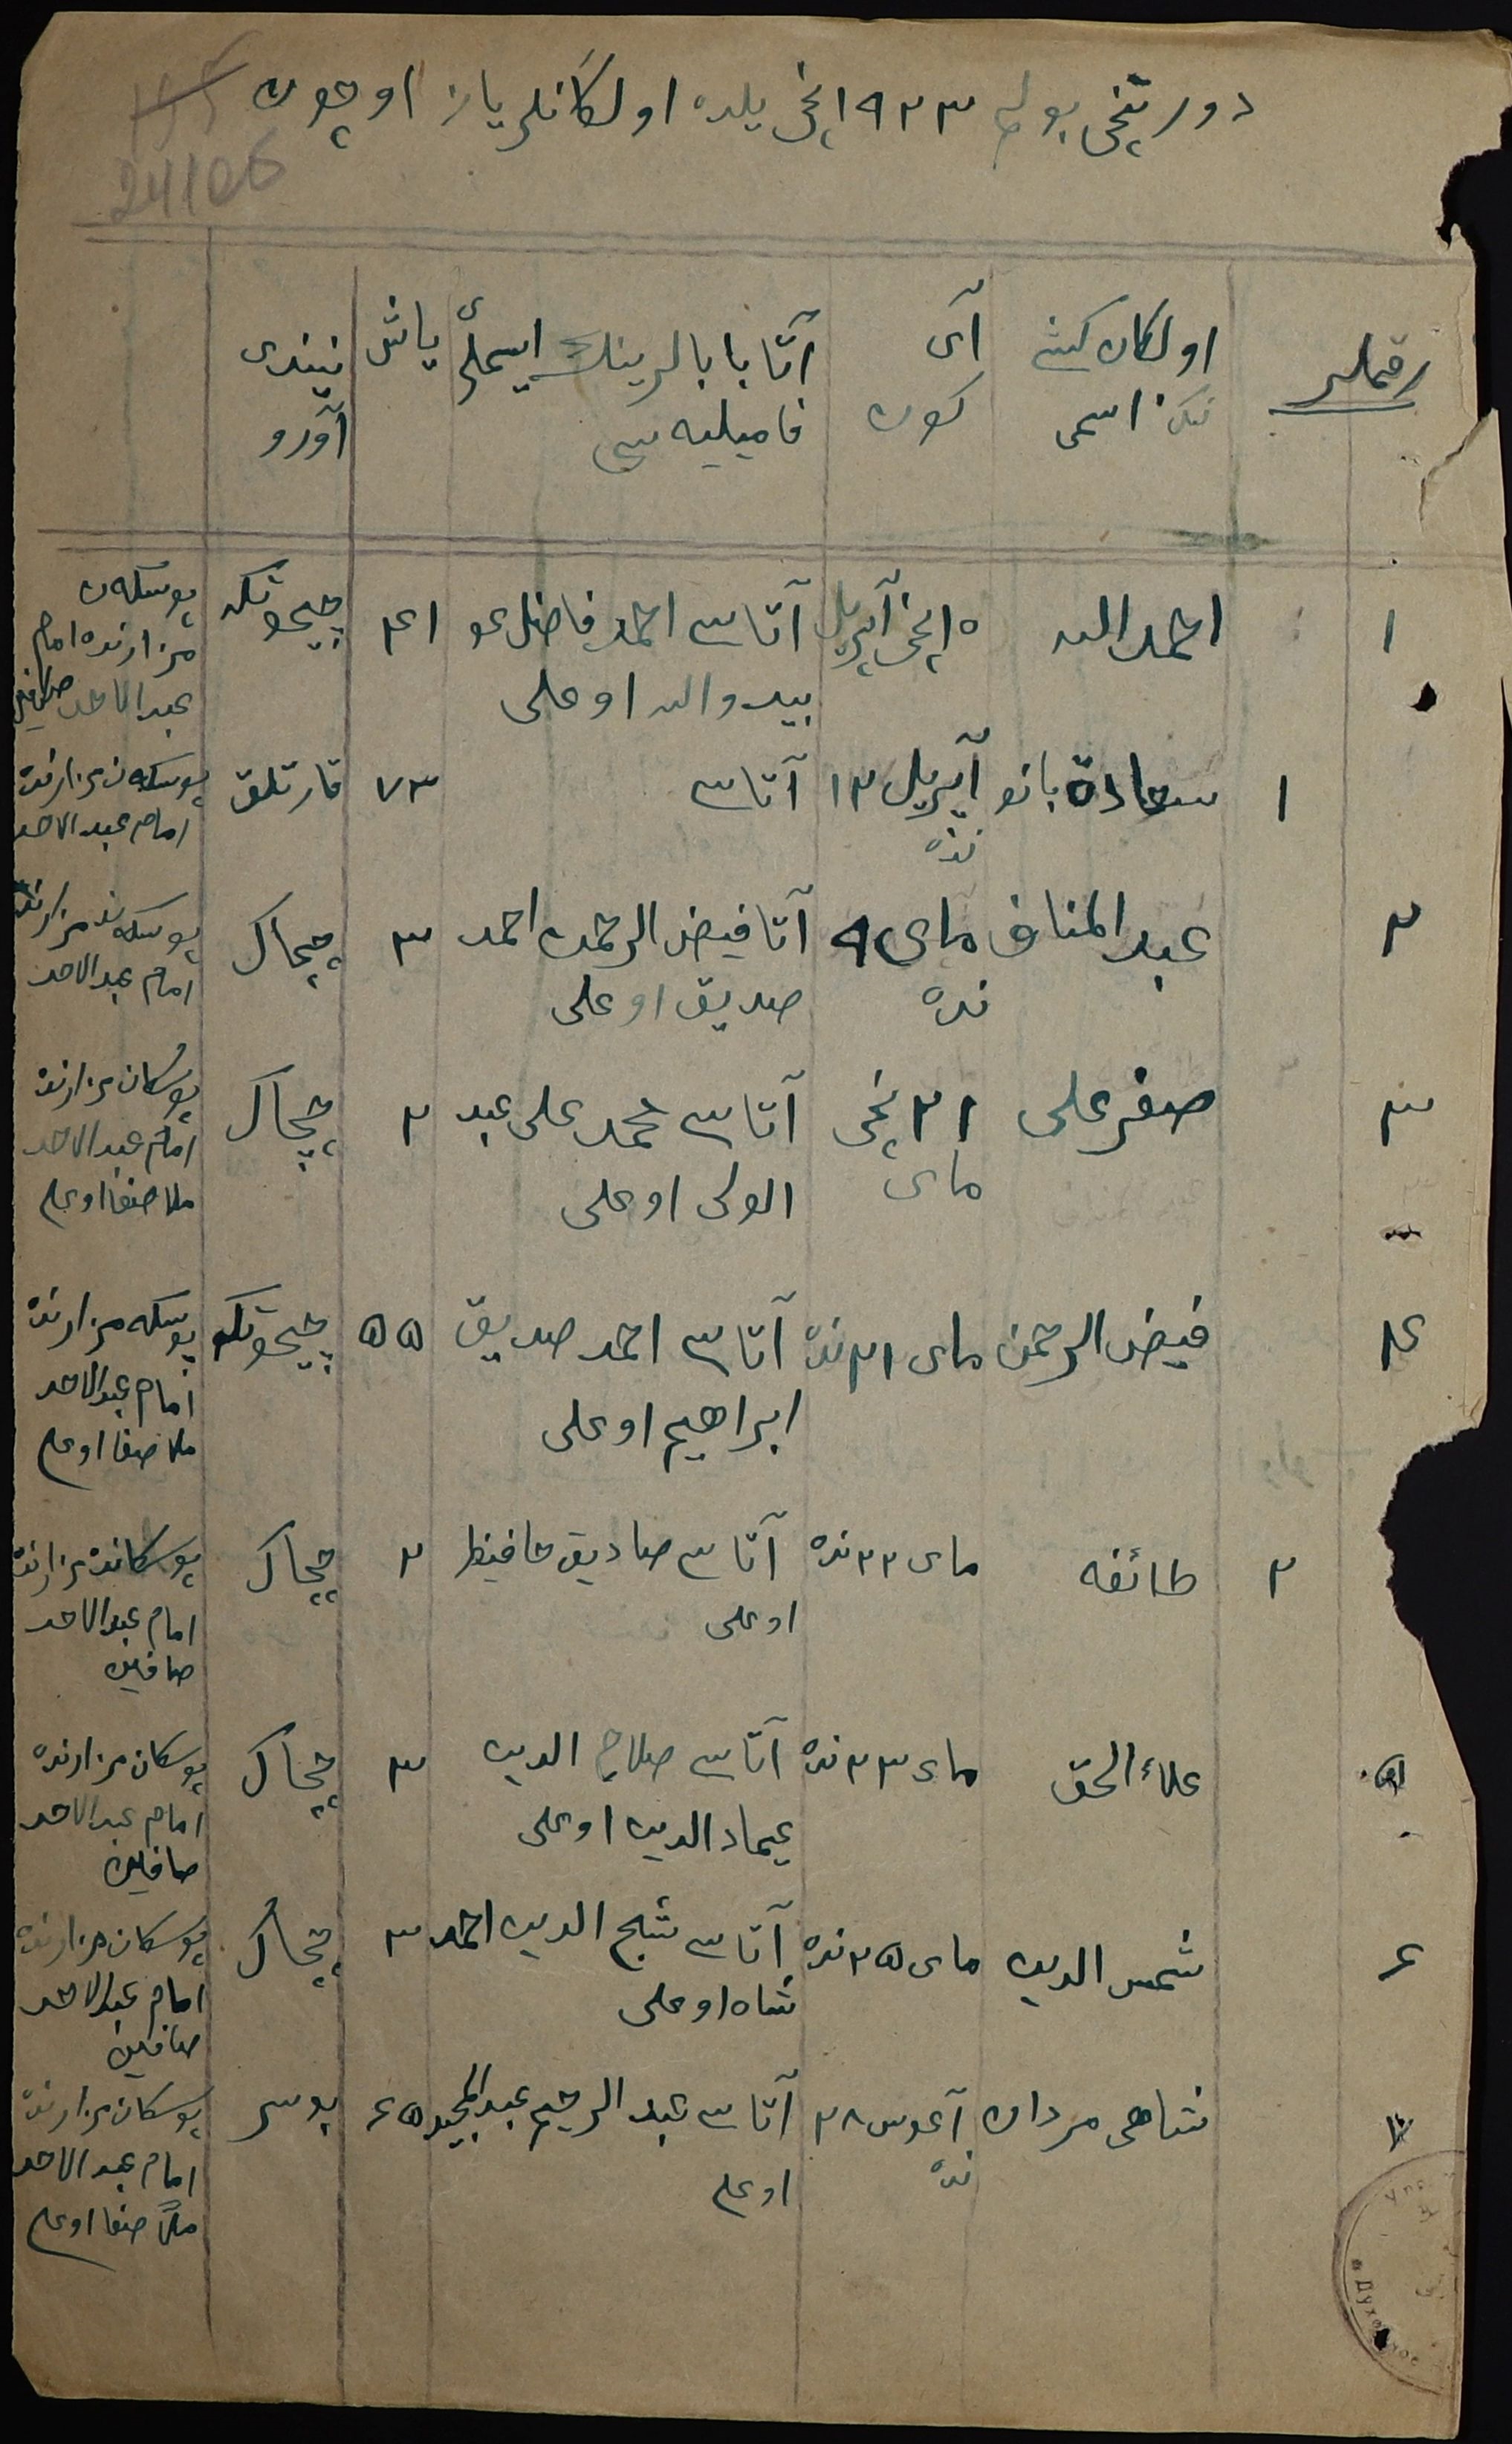 دورتنچی بولم ١٩٢٣ انچی یلده اولگانلر یازا اوچون
24106
رقملر
اولکان کشی
ننک اسمی
آی
کون
آتا بابالرینڭ ایسملری
فامیلیه سی
یاش
نیندی
آورو
١
احمدالله
٥ انچی آپریل
آتاسی احمد فاضل عو
بیدوالله اوعلی
٤١
چیحوتکه
پوسکەن
مزارنده امام
عبدالاحد صافین
١
سعادة بانو
آپریل ١٢
نده
آتاسی
٧٣
قارتلق
پوسکەن مزارنده
امام عبدالاحد
٢
عبدالمناف
مای ٩
نده
آتا فیض الرحمن احمد
صدیق اوعلی
٣
چچاک
پوسکەن مزارنده
امام عبدالاحد
٣
صفرعلی
٢١ نچی
مای
آتاسی محمدعلی عبد
الولی اوعلی
٢
چچاک
پوسکان مزارنده
امام عبدالاحد
ملا صفا اوعلی
٤
فیض الرحمن
مای ٢١ نده
آتاسی احمد صدیق
ابراهیم اوعلی
٥٥
چیحوتکه
پوسکه مزارنده
امام عبدالاحد
ملا صفا اوعلی
٢
طائفه
مای ٢٢ نده
آتاسی صادیق حافیظ
اوعلی
٢
چچاک
پوسکانده مزارنده
امام عبدالاحد
صافین
٥
علاءالحق
مای ٢٣ نده
آتاسی صلاح الدین
عیماد الدین اوعلی
٣
چچاک
پوسکان مزارنده
امام عبدالاحد
صافین
٦
شمس الدین
مای ٢٥ نده
آتاسی شیح الدین احمد
شاه اوعلی
٣
چچاک
پوسکان مزارنده
امام عبدالاحد
صافین
٧
شاهی مردان
آعوس ٢٨
نده
آتاسی عبد الرحیم عبدالمجید
اوعلی
٦٥
بوسر
پوسکان مزارنده
امام عبدالاحد
ملا صفا اوعلی